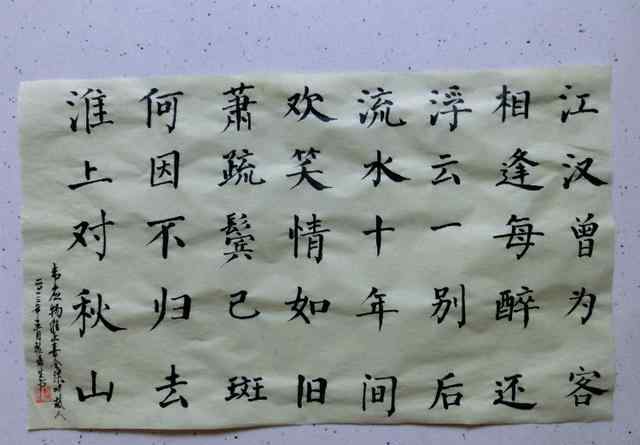 江汉曾为客
相逢每醉还
浮云一别后
流水十年间
欢笑情如旧
萧疏鬓已斑
何因不归去
淮上对秋山
韦应物淮上喜会梁州故人